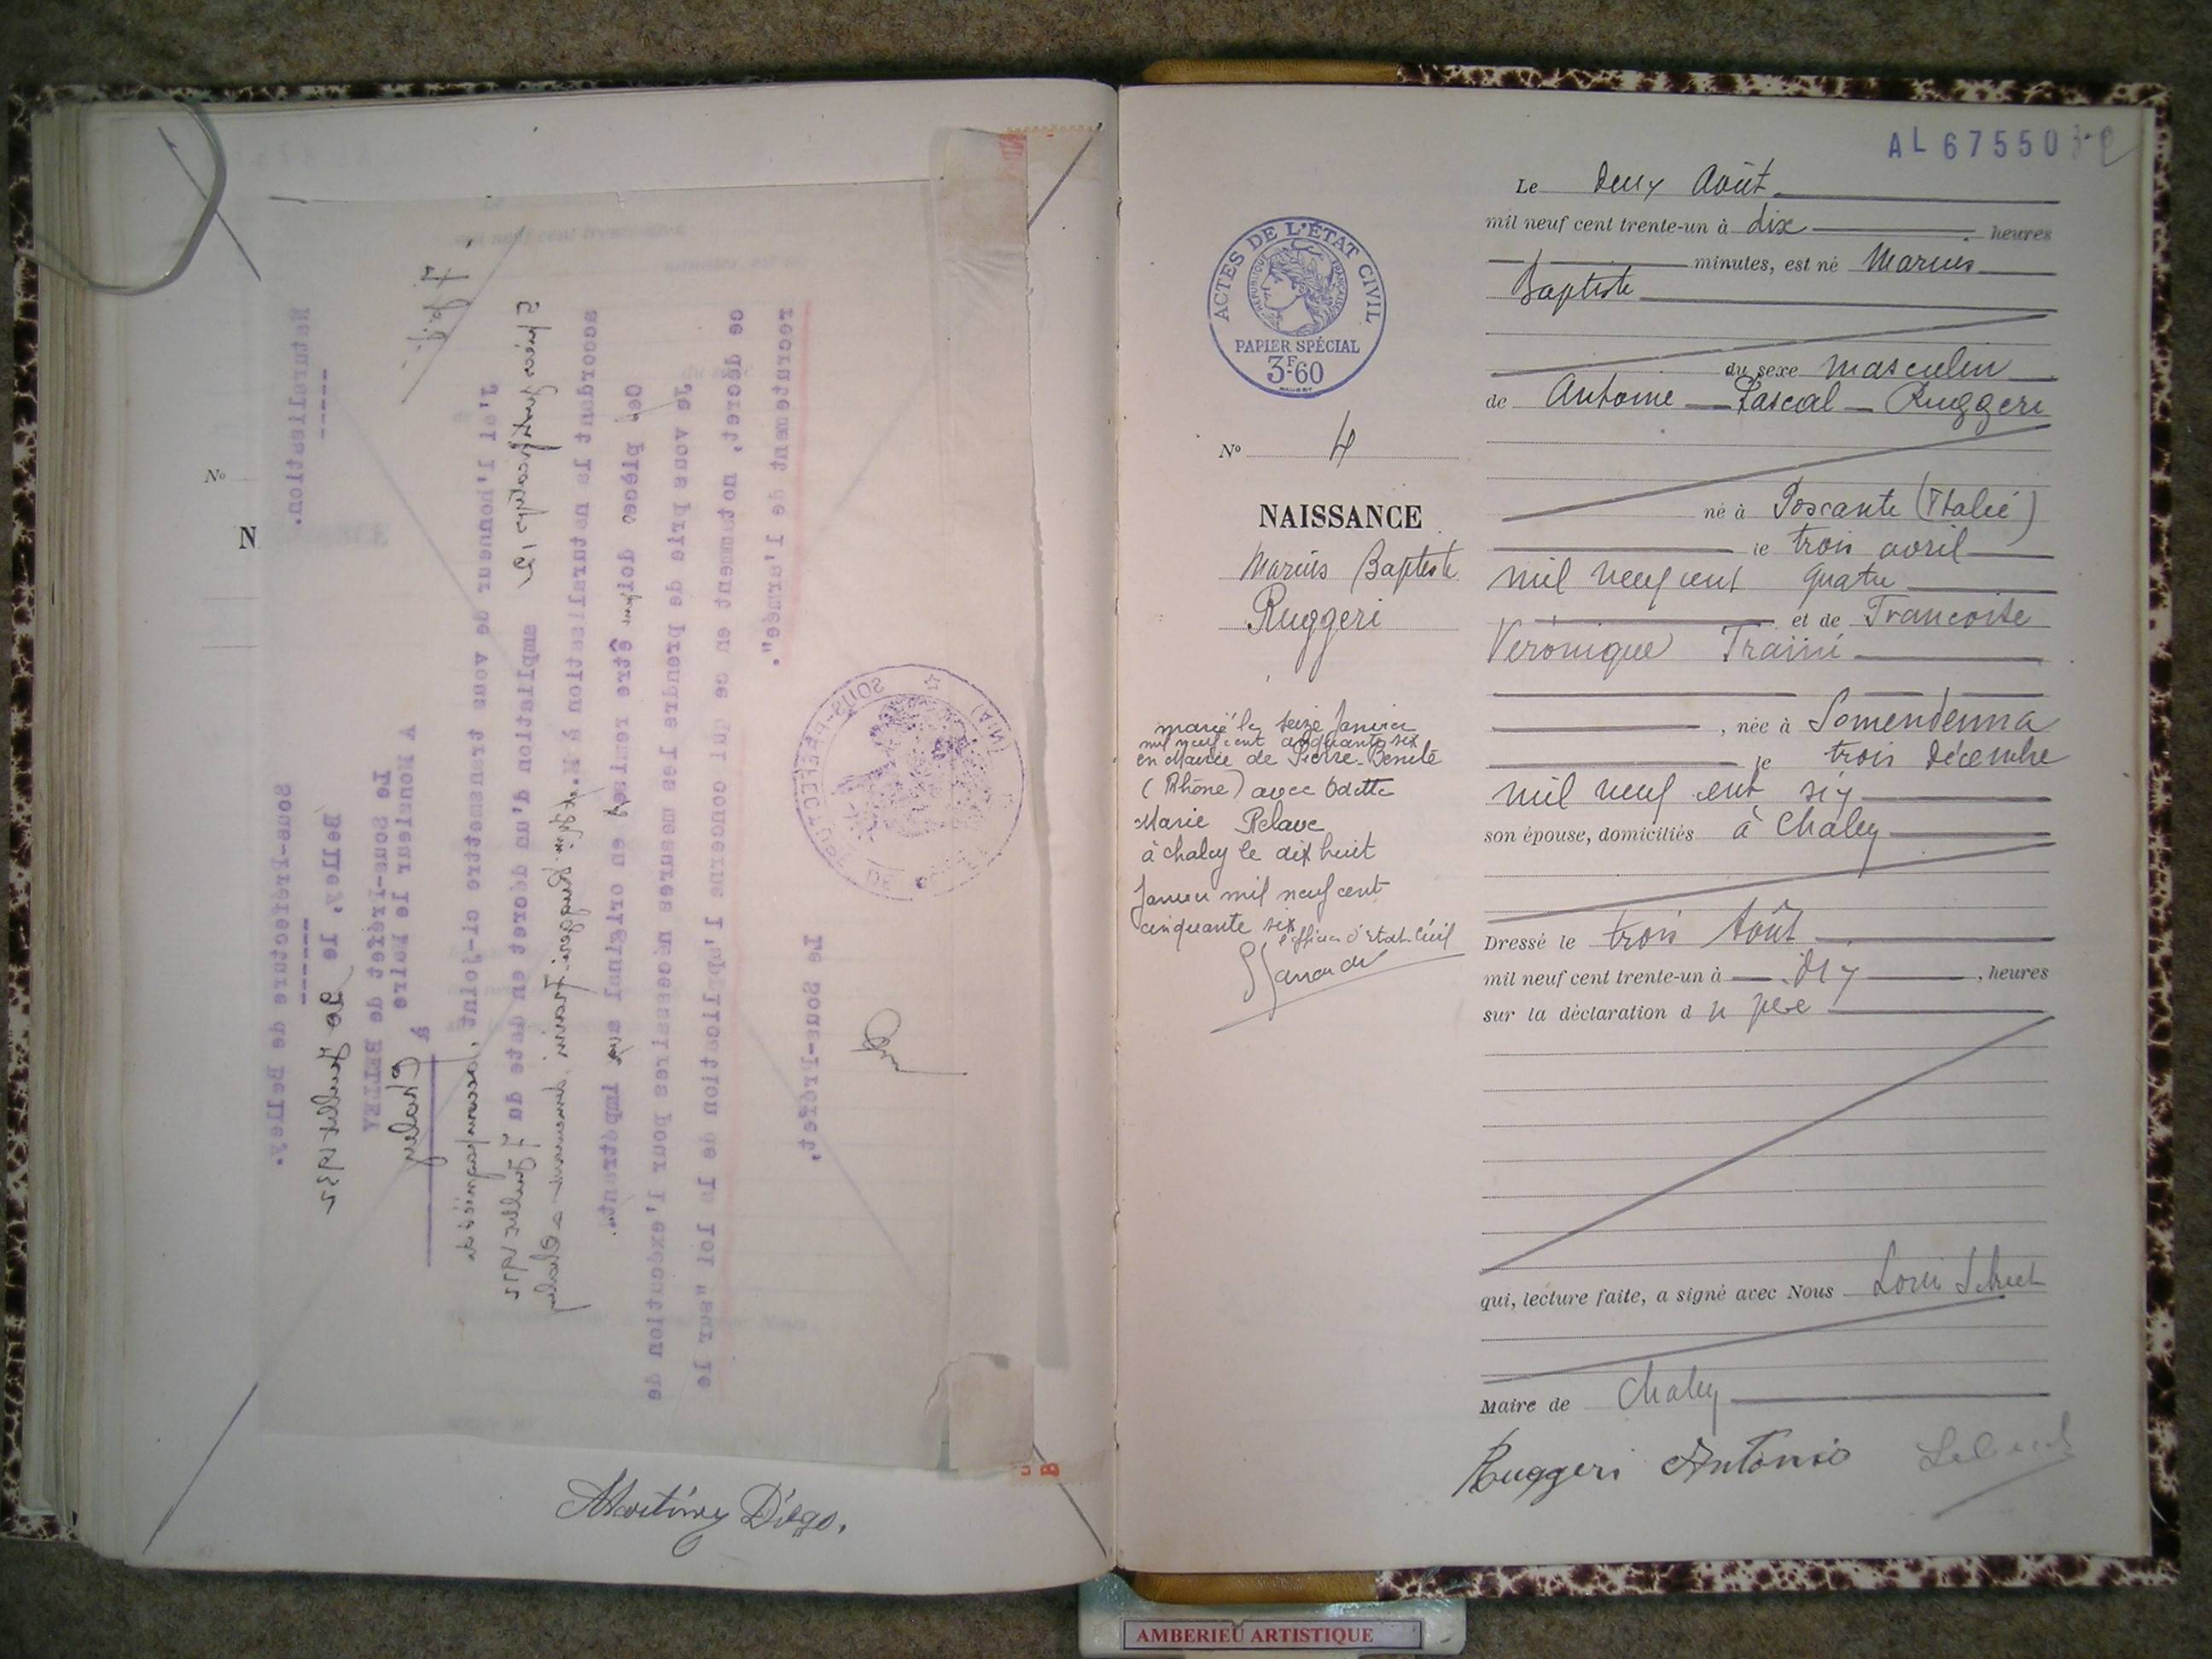 Naturalisation.
Sous-Préfecture de Belley.
Belley, le 20 Juillet 1932
Le Sous-Préfet de BELLEY
à
Monsieur le Maire
Chaley
J'ai l'honneur de vous transmettre ci-joint, accompagnée de
ampliation d'un décret en date du 7 Juillet 1932
accordant la naturalisation à M. Ruggeri Traini demeurant à Chaley
Ces pièces doivent être remises en original aux impétrants.
Je vous prie de prendre les mesures nécessaires pour l'exécution de
ce décret, notamment en ce qui concerne l'application de la loi "sur le
recrutement de l'armée".
Le Sous-Préfet,
SOUS-PRÉFECTURE DE
(AIN)
No
N
Martinez Diégo.
AL 67550
ACTES DE L'ÉTAT CIVIL
RÉPUBLIQUE FRANÇAISE
PAPIER SPÉCIAL
3F60
No 4
NAISSANCE
Marius Baptiste
Ruggeri
marié le seize Janvier
mil neuf cent cinquante six
en Mairie de Pierre-Bénite
(Rhône) avec Odette
Marie Pelave
à chaley le dix huit
Janvier mil neuf cent
cinquante six
l'officier d'état-civil
Le deux Août
mil neuf cent trente-un à dix heures
minutes, est né Marius
Baptiste
du sexe masculin
de Antoine Pascal Ruggeri
né à Poscante (Italie)
le trois avril
mil neuf cent quatre
et de Francoise
Véronique Traini
, née à Somendenna
le trois décembre
mil neuf cent six
son épouse, domiciliés à Chaley
Dressé le trois Août
mil neuf cent trente-un à dix , heures
sur la déclaration du père
qui, lecture faite, a signé avec Nous Louis
Maire de Chaley
Ruggeri Antonio
AMBERIEU ARTISTIQUE